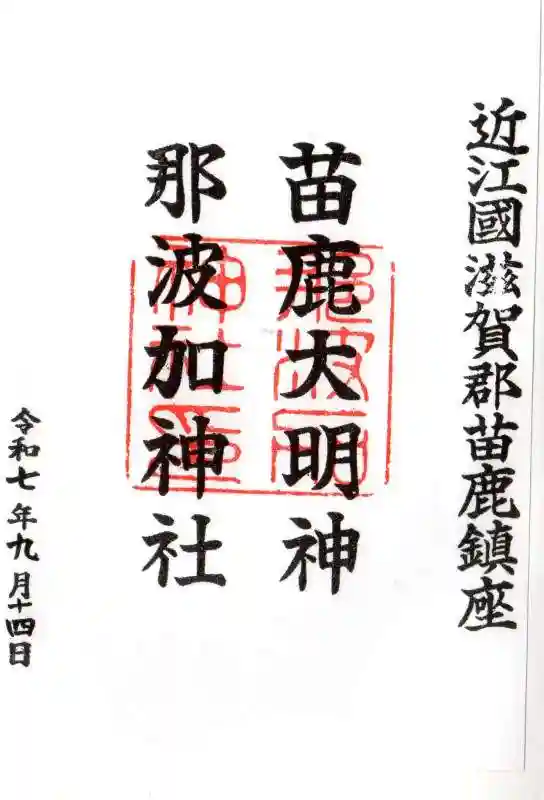 近江國滋賀郡苗鹿鎮座
苗鹿大明神
那波加神社
令和七年九月十四日
那波加
神社印